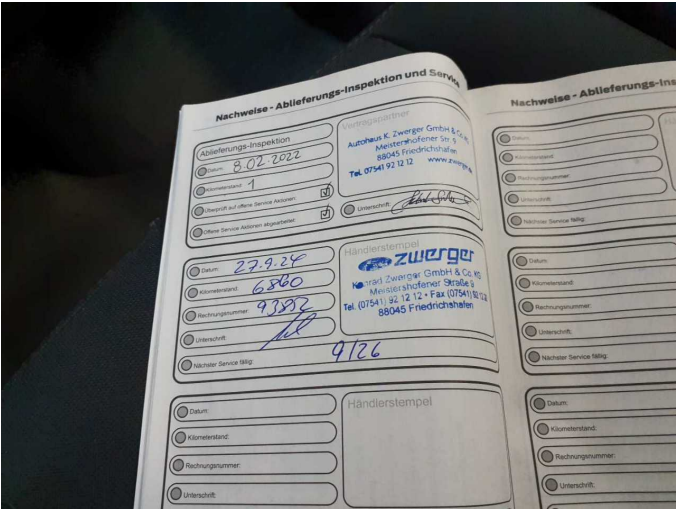 Nachweise - Ablieferungs-Inspektion und Service
Ablieferungs-Inspektion
Datum: 8.02.2022
Kilometerstand: 1
Überprüft auf offene Service Aktionen:
Offene Service Aktionen abgearbeitet:
Vertragspartner
Autohaus K. Zwerger GmbH & Co. KG
Meistershofener Str. 9
88045 Friedrichshafen
Tel. 07541 92 12 12 www.zwerger.
Unterschrift:
Datum: 27.9.24
Kilometerstand: 6860
Rechnungsnummer: 93892
Unterschrift:
Nächster Service fällig: 9/26
Händlerstempel
Ford zwerger
Konrad Zwerger GmbH & Co. KG
Meistershofener Straße 9
Tel. (07541) 92 12 12 • Fax (07541)
88045 Friedrichshafen
Datum:
Kilometerstand:
Rechnungsnummer:
Unterschrift:
Händlerstempel
Nachweise - Ablieferungs-Ins
Datum:
Kilometerstand:
Rechnungsnummer:
Unterschrift:
Nächster Service fällig:
Datum:
Kilometerstand:
Rechnungsnummer:
Unterschrift:
Nächster Service fällig:
Datum:
Kilometerstand:
Rechnungsnummer:
Unterschrift: